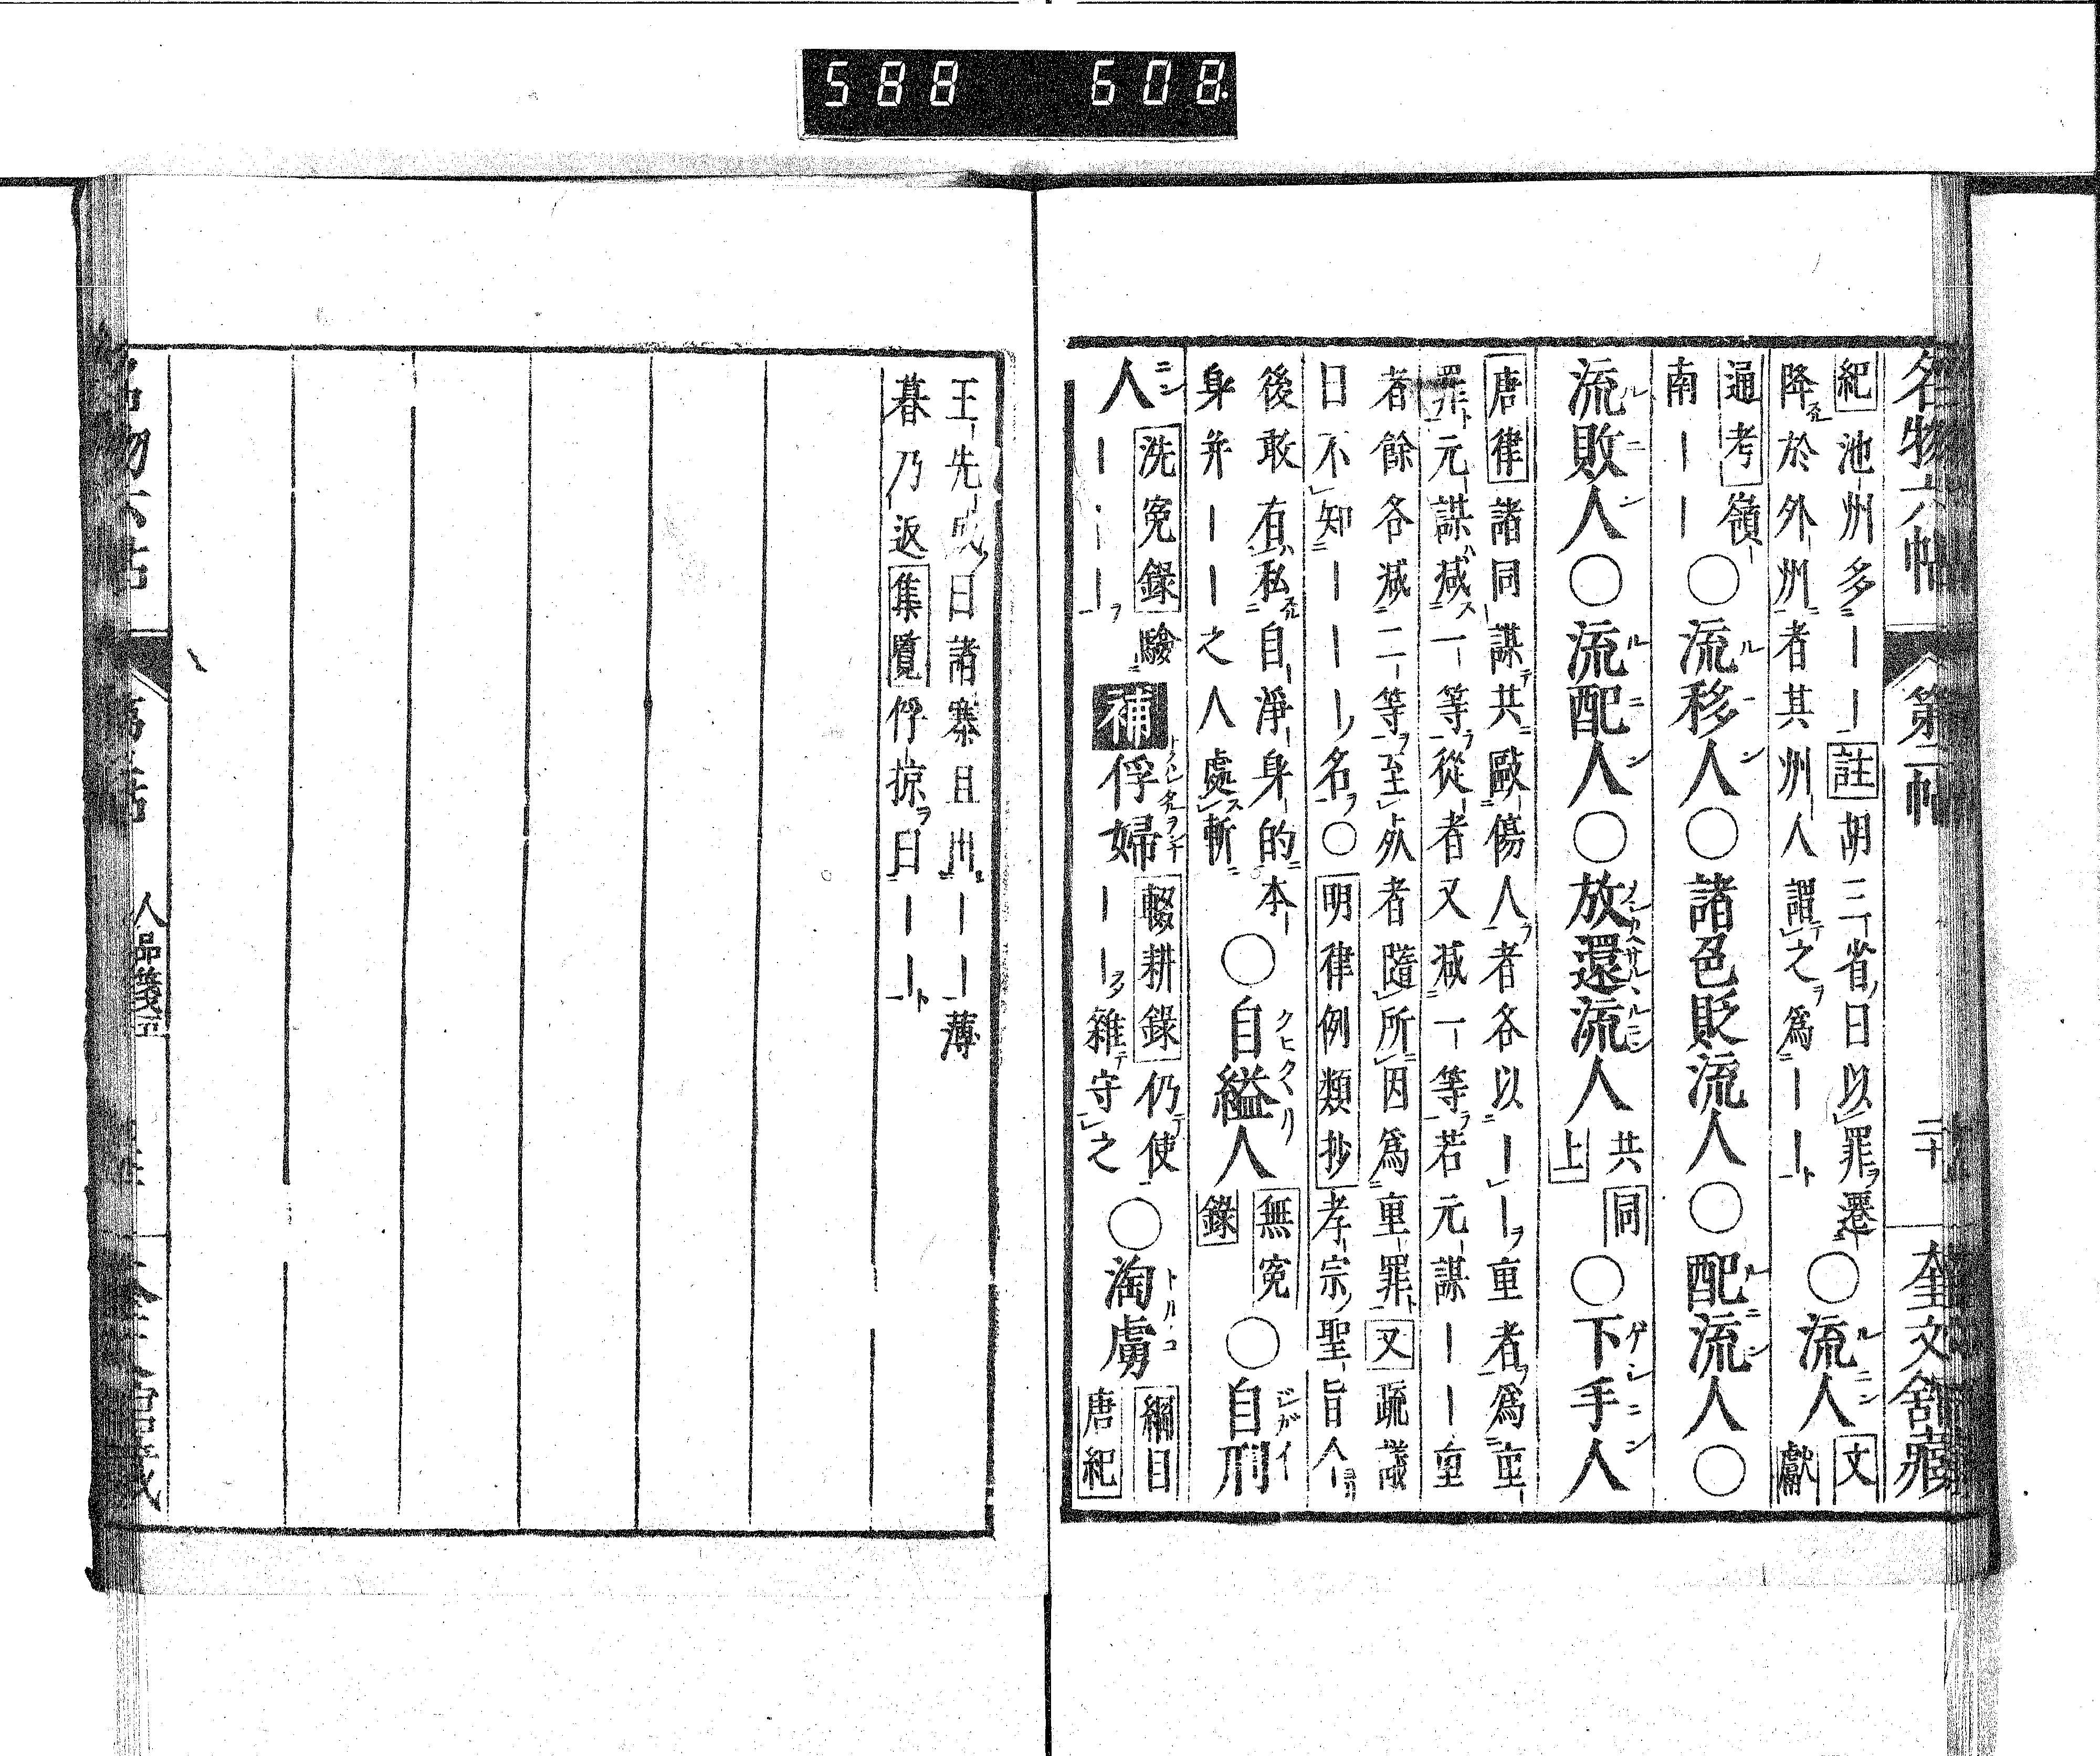 588 608.
名物六帖 第二帖 二十 奎文舘藏
紀池州多｜｜註胡三省曰以罪遷
降於外州者其州人謂之爲｜｜
○流人文獻
通考嶺
南｜｜
○流移人○諸色貶流人○配流人○
流敗人○流配人○放還流人共同上○下手人
唐律諸同謀共毆傷人者各以｜｜重者爲重
罪元謀減一等從者又減一等若元謀｜｜重
者餘各減二等至死者隨所因爲重罪又疏議
曰不知｜｜｜名○明律例類抄孝宗聖旨今
後敢有私自淨身的本
身并｜｜之人處斬
○自縊人無冤錄○自刑
人洗冤錄驗
｜｜｜
補俘婦輟耕錄仍使
｜｜雜守之
○淘虜綱目
唐紀
王先成曰諸寨且出｜｜薄
暮乃返集覧俘掠曰｜｜
人品箋五